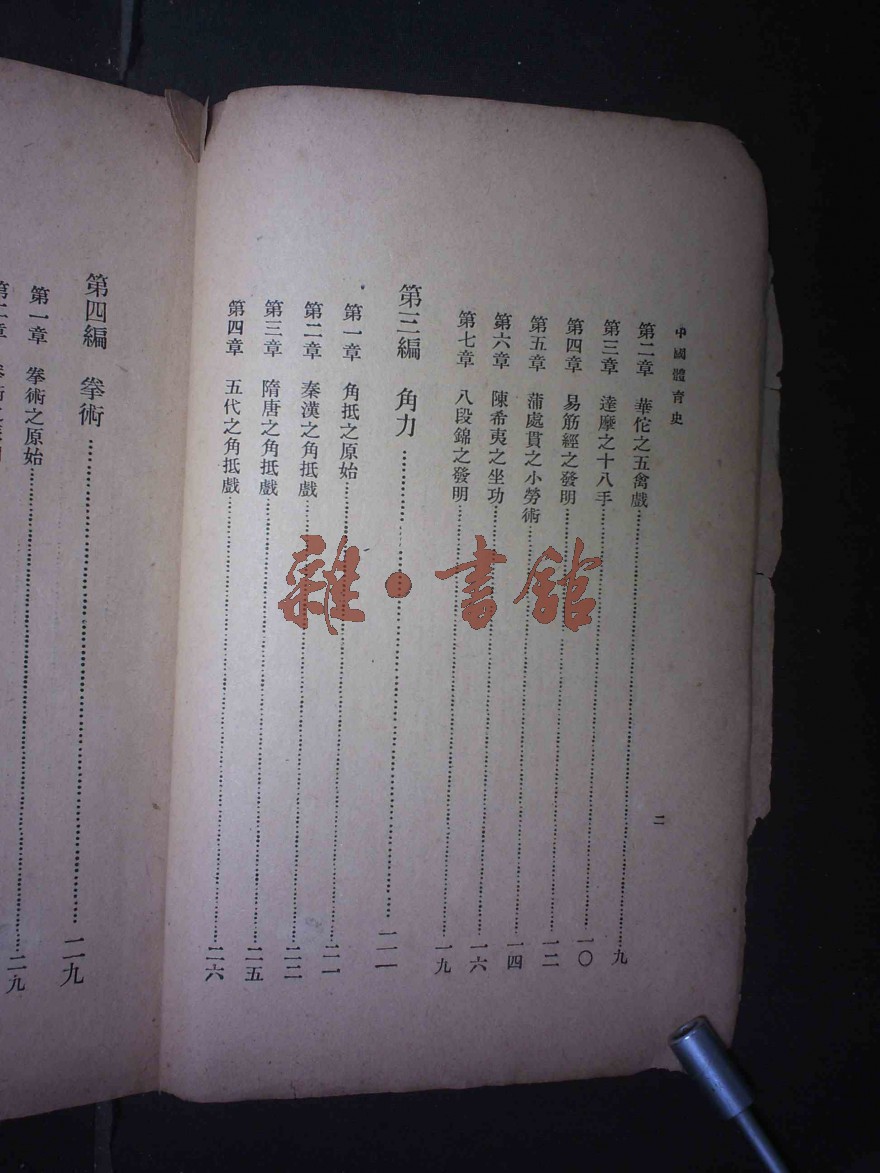 中國體育史
二
第二章 華佗之五禽戲……九
第三章 達摩之十八手……一〇
第四章 易筋經之發明……一二
第五章 蒲處貫之小勞術……一四
第六章 陳希夷之坐功……一六
第七章 八段錦之發明……一九
第三編 角力……二一
第一章 角抵之原始……二一
第二章 秦漢之角抵戲……二二
第三章 隋唐之角抵戲……二五
第四章 五代之角抵戲……二六
第四編 拳術……二九
第一章 拳術之原始……二九
雜·書館